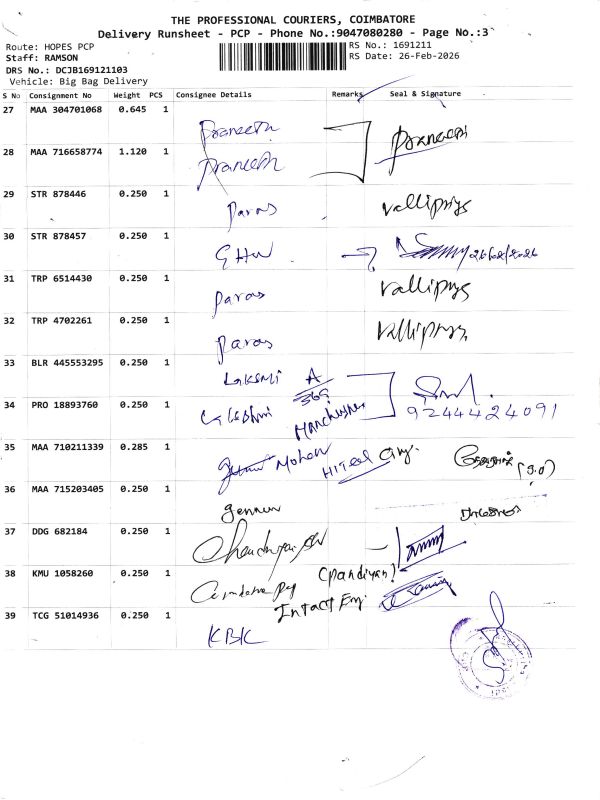 THE PROFESSIONAL COURIERS, COIMBATORE
Delivery Runsheet - PCP - Phone No.:9047080280 - Page No.:3
Route: HOPES PCP
RS No.: 1691211
Staff: RAMSON
RS Date: 26-Feb-2026
DRS No.: DCJB169121103
Vehicle: Big Bag Delivery
S No Consignment No Weight PCS Consignee Details Remarks Seal & Signature
27 MAA 304701068 0.645 1 Praneeth
28 MAA 716658774 1.120 1 Praneeth Praneeth
29 STR 878446 0.250 1 Paras Vallipriya
30 STR 878457 0.250 1 GHW 26/02/2026
31 TRP 6514430 0.250 1 Paras Vallipriya
32 TRP 4702261 0.250 1 Paras Vallipriya
33 BLR 445553295 0.250 1 Laksmi A 369
34 PRO 18893760 0.250 1 Manchester 9244424091
35 MAA 710211339 0.285 1 Mohan
36 MAA 715203405 0.250 1
37 DDG 682184 0.250 1
38 KMU 1058260 0.250 1 (Pandiyan)
Intact Eng.
39 TCG 51014936 0.250 1 KBK